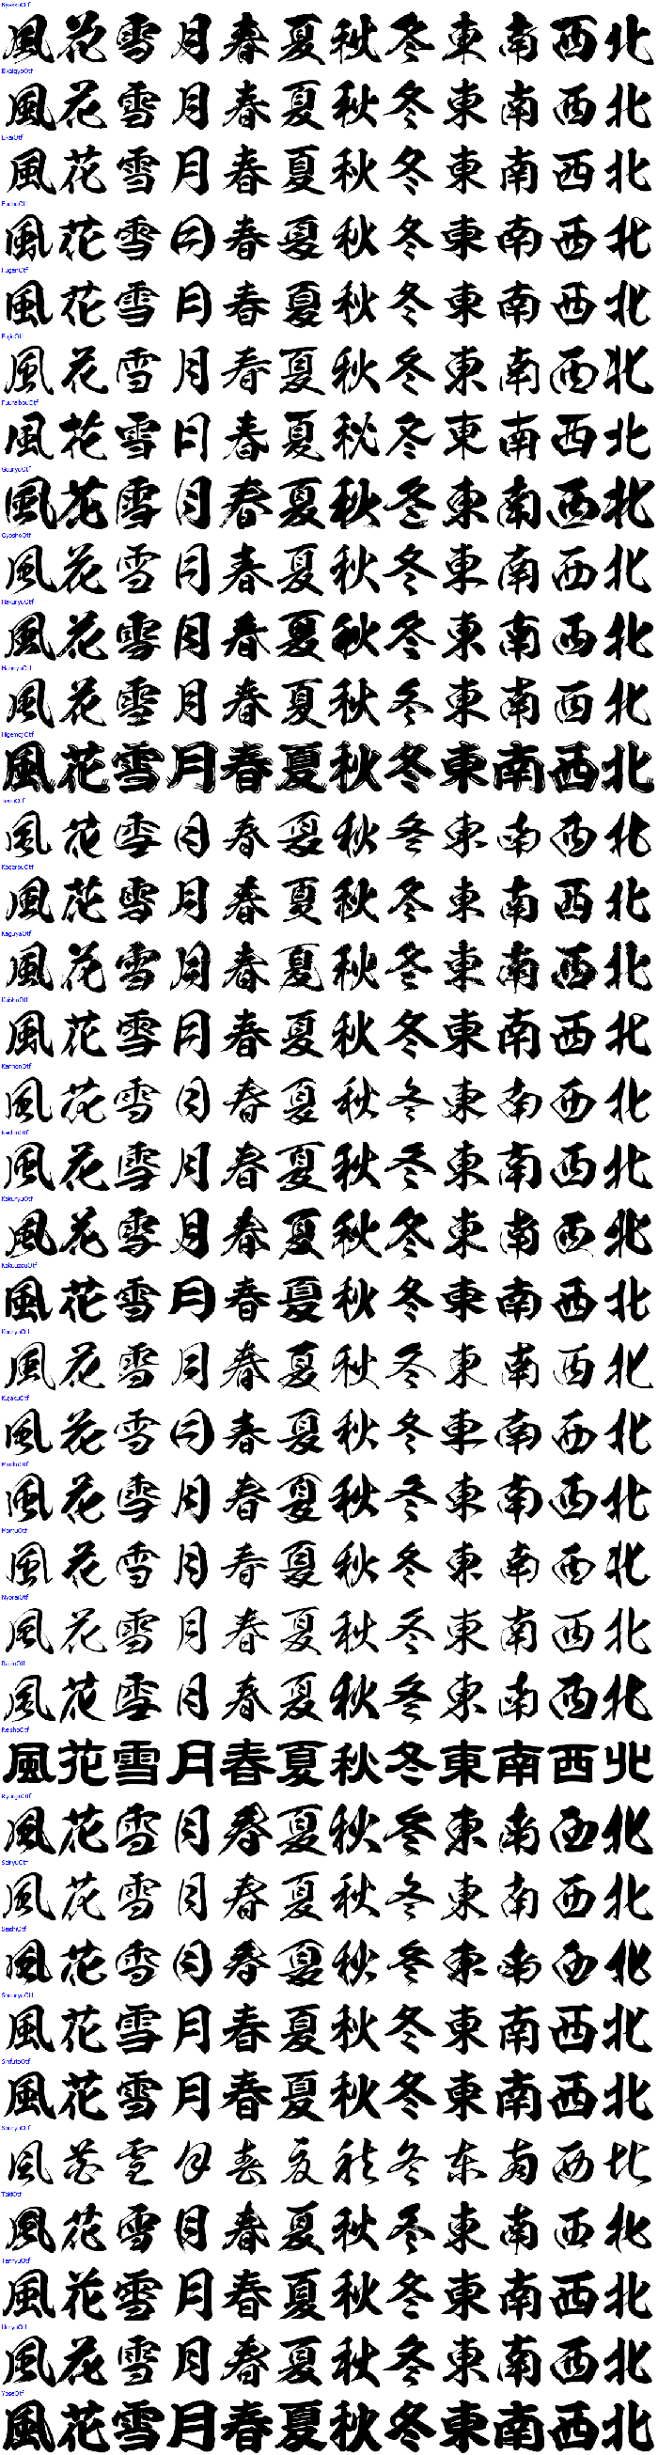 風花雪月春夏秋冬東南西北
風花雪月春夏秋冬東南西北
EkaiOtf
風花雪月春夏秋冬東南西北
FudouOtf
風花雪月春夏秋冬東南西北
FugenOtf
風花雪月春夏秋冬東南西北
FujinOtf
風花雪月春夏秋冬東南西北
風花雪月春夏秋冬東南西北
GouryuOtf
風花雪月春夏秋冬東南西北
GyoshoOtf
風花雪月春夏秋冬東南西北
HakuryuOtf
風花雪月春夏秋冬東南西北
HannyaOtf
風花雪月春夏秋冬東南西北
HigemojiOtf
風花雪月春夏秋冬東南西北
風花雪月春夏秋冬東南西北
KagerouOtf
風花雪月春夏秋冬東南西北
KaguyaOtf
風花雪月春夏秋冬東南西北
KaishoOtf
風花雪月春夏秋冬東南西北
KannonOtf
風花雪月春夏秋冬東南西北
風花雪月春夏秋冬東南西北
KokuryuOtf
風花雪月春夏秋冬東南西北
KokuuzouOtf
風花雪月春夏秋冬東南西北
KouryuOtf
風花雪月春夏秋冬東南西北
KujakuOtf
風花雪月春夏秋冬東南西北
風花雪月春夏秋冬東南西北
風花雪月春夏秋冬東南西北
NyoraiOtf
風花雪月春夏秋冬東南西北
風花雪月春夏秋冬東南西北
ReishoOtf
風花雪月春夏秋冬東南西北
RyuujinOtf
風花雪月春夏秋冬東南西北
風花雪月春夏秋冬東南西北
SeishiOtf
風花雪月春夏秋冬東南西北
風花雪月春夏秋冬東南西北
風花雪月春夏秋冬東南西北
SouryuOtf
風花雪月春夏秋冬東南西北
風花雪月春夏秋冬東南西北
TenryuOtf
風花雪月春夏秋冬東南西北
UnryuOtf
風花雪月春夏秋冬東南西北
YoseOtf
風花雪月春夏秋冬東南西北